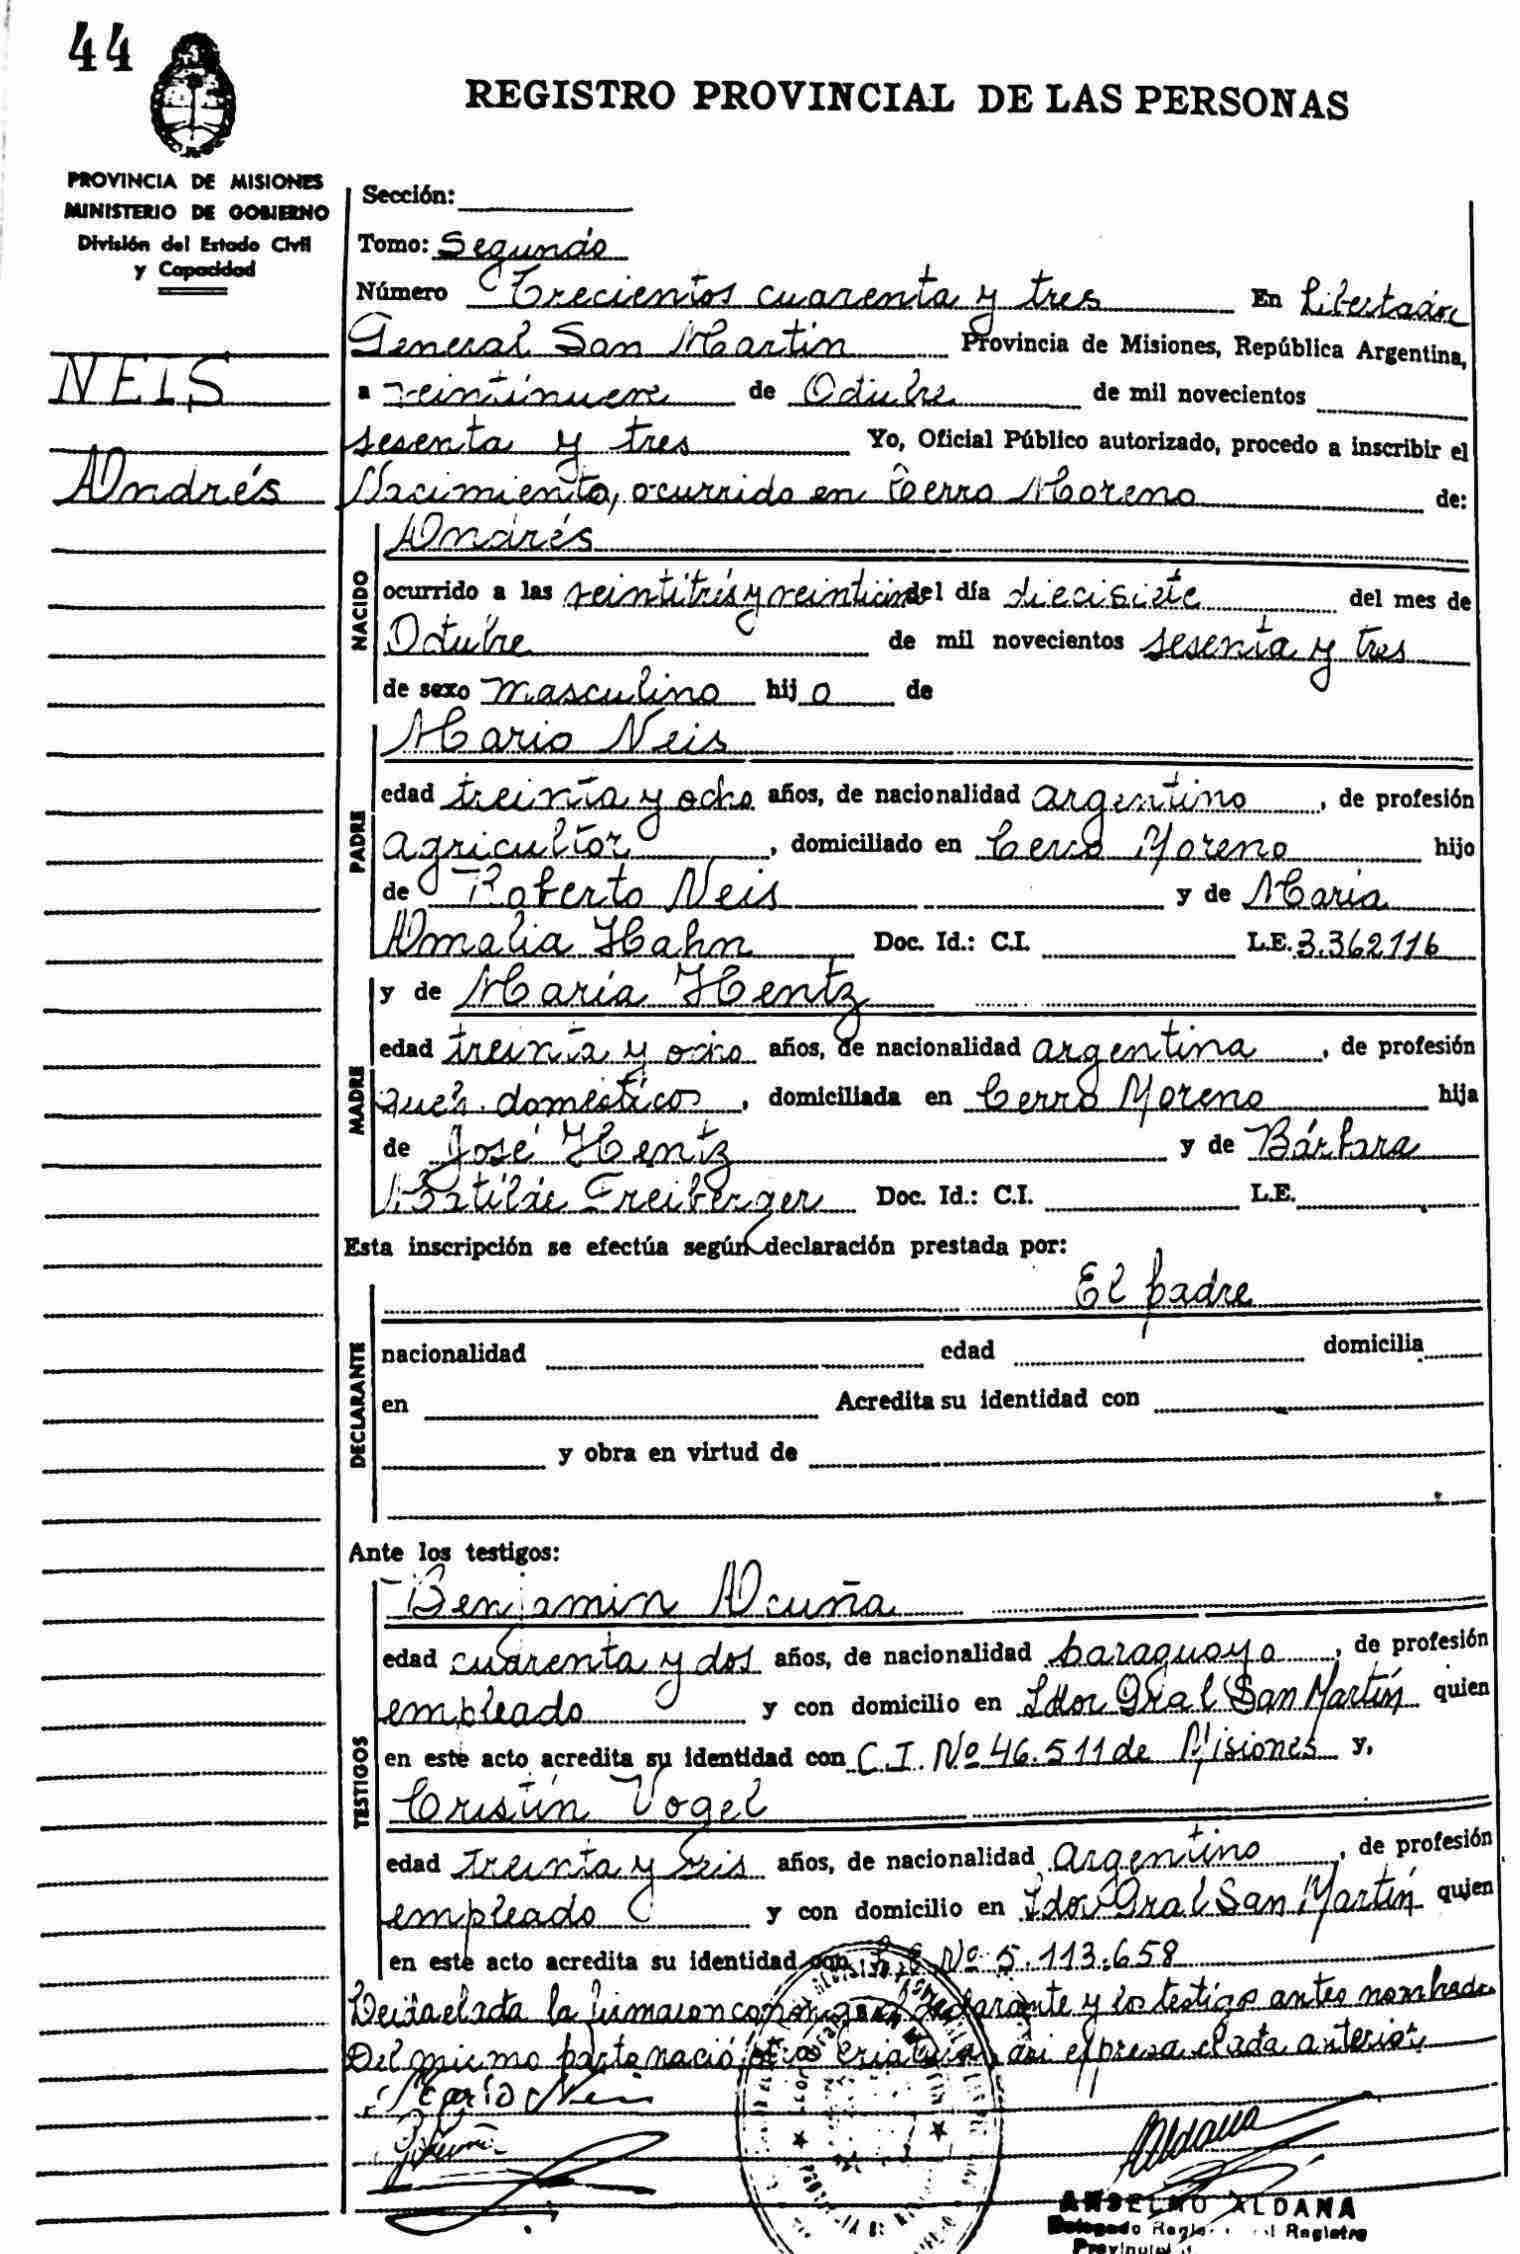 44
REGISTRO PROVINCIAL DE LAS PERSONAS
PROVINCIA DE MISIONES
MINISTERIO DE GOBIERNO
División del Estado Civil
y Capacidad
NEIS
Andrés
Sección:
Tomo: Segundo
Número Trecientos cuarenta y tres En Libertador
General San Martin Provincia de Misiones, República Argentina,
a veintinueve de Octubre de mil novecientos
sesenta y tres Yo, Oficial Público autorizado, procedo a inscribir el
Nacimiento, ocurrido en Cerro Moreno de:
NACIDO
Andrés
ocurrido a las veintitrés y veinticinco del día diecisiete del mes de
Octubre de mil novecientos sesenta y tres
de sexo masculino hijo de
PADRE
Mario Neis
edad treinta y ocho años, de nacionalidad argentino, de profesión
agricultor, domiciliado en Cerro Moreno hijo
de Roberto Neis y de Maria
Amalia Hahn Doc. Id.: C.I. L.E. 3.362.116
MADRE
y de María Hentz
edad treinta y ocho años, de nacionalidad argentina, de profesión
queh. domésticos, domiciliada en Cerro Moreno hija
de José Hentz y de Bárbara
Matilde Freiberger Doc. Id.: C.I. L.E.
Esta inscripción se efectúa según declaración prestada por:
DECLARANTE
El padre
nacionalidad edad domicilia
en Acredita su identidad con
y obra en virtud de
Ante los testigos:
TESTIGOS
Benjamin Acuña
edad cuarenta y dos años, de nacionalidad paraguayo, de profesión
empleado y con domicilio en Ldor Gral San Martín quien
en este acto acredita su identidad con C.I. Nº 46.511 de Misiones y,
Cristin Vogel
edad treinta y seis años, de nacionalidad argentino, de profesión
empleado y con domicilio en Ldor Gral San Martín quien
en este acto acredita su identidad con Nº 5.113.658
Leída el acta la firmaron conmigo el declarante y los testigo antes nombrado
Del mismo parto nació otra criatura, asi expresa el acta anterior
Mario Neis
Aldana
ANSELMO ALDANA
Delegado Registro
Provincial